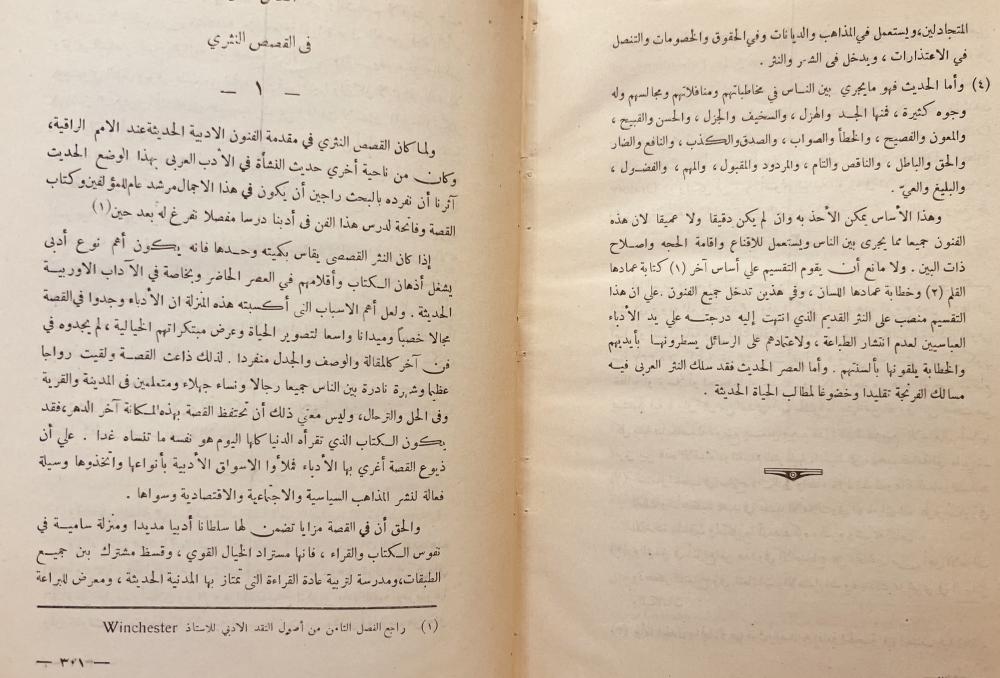 المتجادلين، ويستعمل في المذاهب والديانات وفي الحقوق والخصومات والتنصل
في الاعتذارات ، ويدخل في الشعر والنثر .
(٤) وأما الحديث فهو مايجري بين النـاس في مخاطباتهم ومناقلاتهم ومجالسهم وله
وجوه كثيرة ، فمنها الجـد والهزل ، والسخيف والجزل ، والحسن والقبيح ،
والملعون والفصيح ، والخطأ والصواب ، والصدق والكذب ، والنافع والضار
والحق والباطل ، والناقص والتام ، والمردود والمقبول ، والمهم ، والفضـول ،
والبليغ والعيّ .
وهذا الأساس يمكن الأخذ به وان لم يكن دقيقا ولا عميقا لان هذه
الفنون جميعا مما يجرى بين الناس ويستعمل للاقناع واقامة الحجه واصـلاح
ذات البين . ولا مانع أن يقوم التقسيم علي أساس آخر (١) كتابة عمادها
القلم (٢) وخطابة عمادها اللسان ، وفى هذين تدخل جميع الفنون . علي ان هذا
التقسيم منصب على النثر القديم الذي انتهت إليه درجتـه علي يد الأدباء
العباسيين لعدم انتشار الطباعة ، ولاعتمادهم على الرسائل يسطرونهـا بأيديهم
والخطابة يلقونها بألسنتهم . وأما العصر الحديث فقد سلك النثر العربى فيـه
مسالك الفرنجة تقليدا وخضوعا لمطالب الحياة الحديثة .
فى القصص النثري
— ١ —
ولما كان القصص النثري في مقدمة الفنون الادبية الحديثة عند الامم الراقية،
وكان من ناحية أخري حديث النشأة في الأدب العربى بهذا الوضع الحديث
آثرنا أن نفرده بالبحث راجين أن يكون في هذا الاجمال مرشد عام للمؤلفين وكتاب
القصة وفاتحة لدرس هذا الفن فى أدبنا درسا مفصلا نفرغ له بعد حين (١)
إذا كان النثر القصصى يقاس بكميته وحـدها فانه يكون أهم نوع أدبي
يشغل أذهان الكتاب وأقلامهم في العصر الحاضر وبخاصة في الآداب الاوربيـة
الحديثة . ولعل أهم الاسباب التى أكسبته هذه المنزلة ان الأدباء وجدوا في القصة
مجالا خصباً وميدانا واسعا لتصوير الحياة وعرض مبتكراتهم الخيالية ، لم يجدوه في
فن آخر كالمقالة والوصف والجدل منفردا . لذلك ذاعت القصـة ولقيت رواجا
عظيما وشهرة نادرة بين الناس جميعا رجالا ونساء جهلاء ومتعلمين فى المدينة والقرية
وفى الحل والترحال، وليس معني ذلك أن تحتفظ القصة بهذه المكانة آخر الدهر، فقد
يكون الكتاب الذي تقرأه الدنيا كلها اليوم هو نفسه ما تنساه غدا . علي أن
ذيوع القصة أغري بها الأدباء فملأوا الاسواق الأدبية بأنواعها واتخذوها وسيلة
فعالة لنشر المذاهب السياسية والاجتماعية والاقتصادية وسواها .
والحق أن في القصة مزايا تضمن لها سلطانا أدبيا مديدا ومنزلة ساميـة في
نفوس الكتاب والقراء ، فانها مستراد الخيال القوي ، وقسط مشترك بين جميـع
الطبقات، ومدرسة لتربية عادة القراءة التى تمتاز بها المدنية الحديثة ، ومعرض للبراعة
(١) راجع الفصل الثامن من أصول النقد الادبي للاستاذ Winchester
— ٣٠١ —